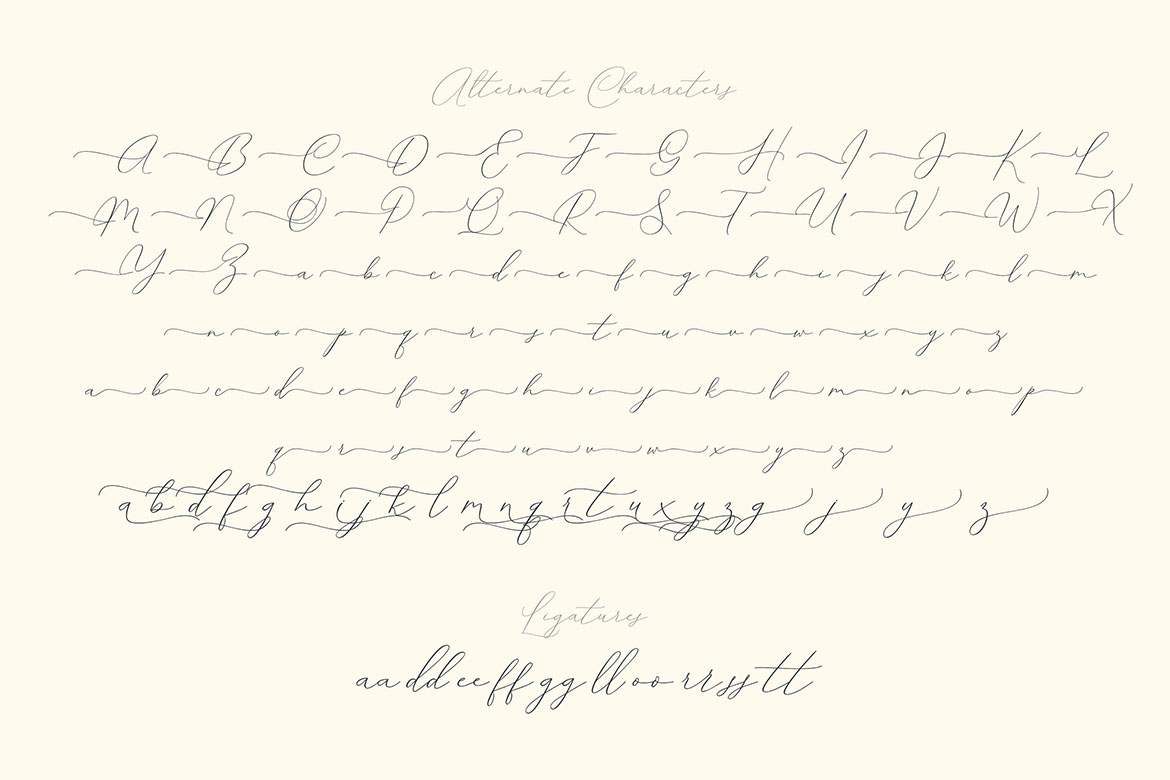 Alternate Characters
A B C D E F G H I J K L
M N O P Q R S T U V W X
Y Z a b c d e f g h i j k l m
n o p q r s t u v w x y z
a b c d e f g h i j k l m n o p
q r s t u v w x y z
a b d f g h i j k l m n q r t u x y z g j y z
Ligatures
aa dd ee ff gg ll oo rr ss tt